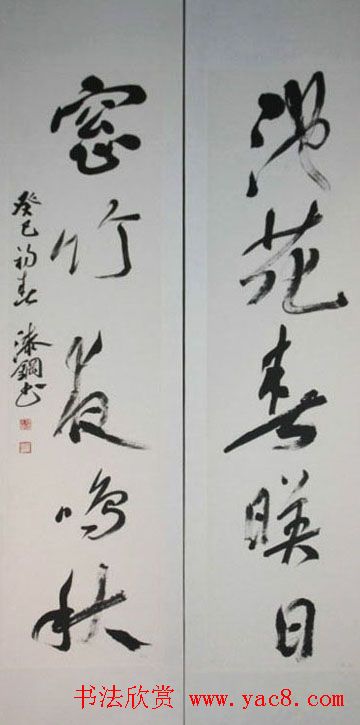 池花春暎日
窓竹夜鳴秋
癸巳初春 漆鋼书
书法欣赏 www.yac8.com